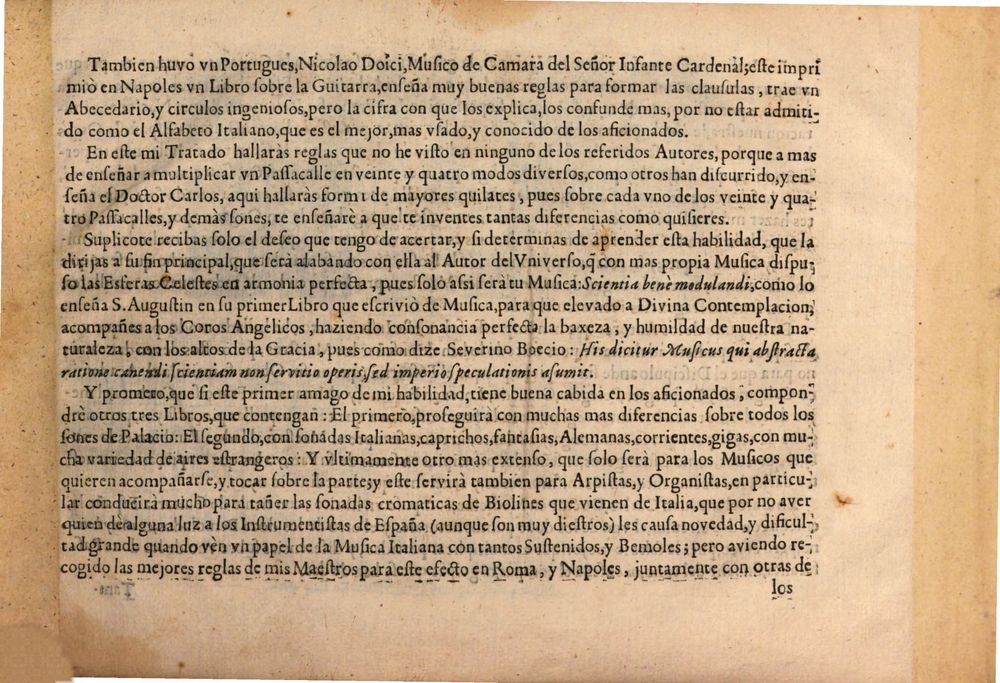 Tambien huvo vn Portugues, Nicolao Doici, Musico de Camara del Señor Infante Cardenal; este impri
miò en Napoles vn Libro sobre la Guitarra, enseña muy buenas reglas para formar las clausulas, trae vn
Abecedario, y circulos ingeniosos, pero la cifra con que los explica, los confunde mas, por no estar admiti-
do como el Alfabeto Italiano, que es el mejor, mas vsado, y conocido de los aficionados.
En este mi Tratado hallaràs reglas que no he visto en ninguno de los referidos Autores, porque a mas
de enseñar a multiplicar vn Passacalle en veinte y quatro modos diversos, como otros han discurrido, y en-
seña el Doctor Carlos, aqui hallaràs forma de mayores quilates, pues sobre cada vno de los veinte y qua-
tro Passacalles, y demàs sones, te enseñarè a que te inventes tantas diferencias como quisieres.
Suplicote recibas solo el deseo que tengo de acertar, y si determinas de aprender esta habilidad, que la
dirijas a su fin principal, que serà alabando con ella al Autor del Vniverso, q̃ con mas propia Musica dispu-
so las Esferas Celestes en armonia perfecta, pues solo assi serà tu Musica: Scientia bene modulandi, como lo
enseña S. Augustin en su primer Libro que escriviò de Musica, para que elevado a Divina Contemplacion,
acompañes a los Coros Angelicos, haziendo consonancia perfecta la baxeza, y humildad de nuestra na-
turaleza, con los altos de la Gracia, pues como dize Severino Boecio: His dicitur Musicus qui abstracta
ratione canendi scientiam non servitio operis, sed imperio speculationis asumit.
Y prometo, que si este primer amago de mi habilidad, tiene buena cabida en los aficionados, compon-
drè otros tres Libros, que contengan: El primero, proseguirà con muchas mas diferencias sobre todos los
sones de Palacio: El segundo, con sonadas Italianas, caprichos, fantasias, Alemanas, corrientes, gigas, con mu-
cha variedad de aires estrangeros: Y vltimamente otro mas extenso, que solo serà para los Musicos que
quieren acompañarse, y tocar sobre la parte; y este servirà tambien para Arpistas, y Organistas, en particu-
lar conducirà mucho para tañer las sonadas cromaticas de Biolines que vienen de Italia, que por no aver
quien dè alguna luz a los Instrumentistas de España (aunque son muy diestros) les causa novedad, y dificul-
tad grande quando vèn vn papel de la Musica Italiana con tantos Sustenidos, y Bemoles; pero aviendo re-
cogido las mejores reglas de mis Maestros para este efecto en Roma, y Napoles, juntamente con otras de
los